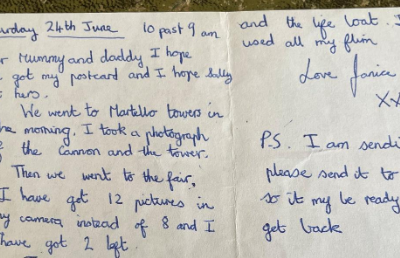 urday 24th June 10 past 9 am
r Mummy and daddy I hope
got my postcard and I hope Sally
hers.
We went to Martello towers in
he morning. I took a photograph
the cannon and the tower.
Then we went to the fair,
I have got 12 pictures in
y camera instead of 8 and I
have got 2 left.
and the life boat. I
used all my flim
Love Janice
XX
P.S. I am sendi
please send it to
so it my be ready
get back